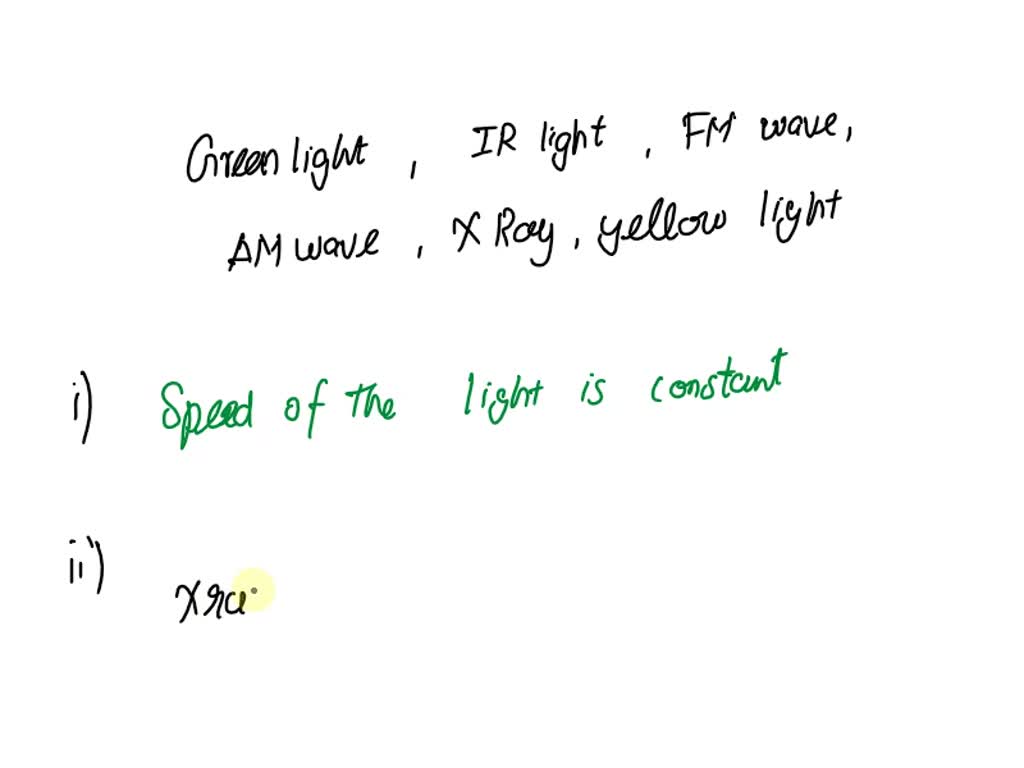 Green light , IR light , FM wave,
AM wave , X Ray , yellow light
i) Speed of the light is constant
ii) Xra